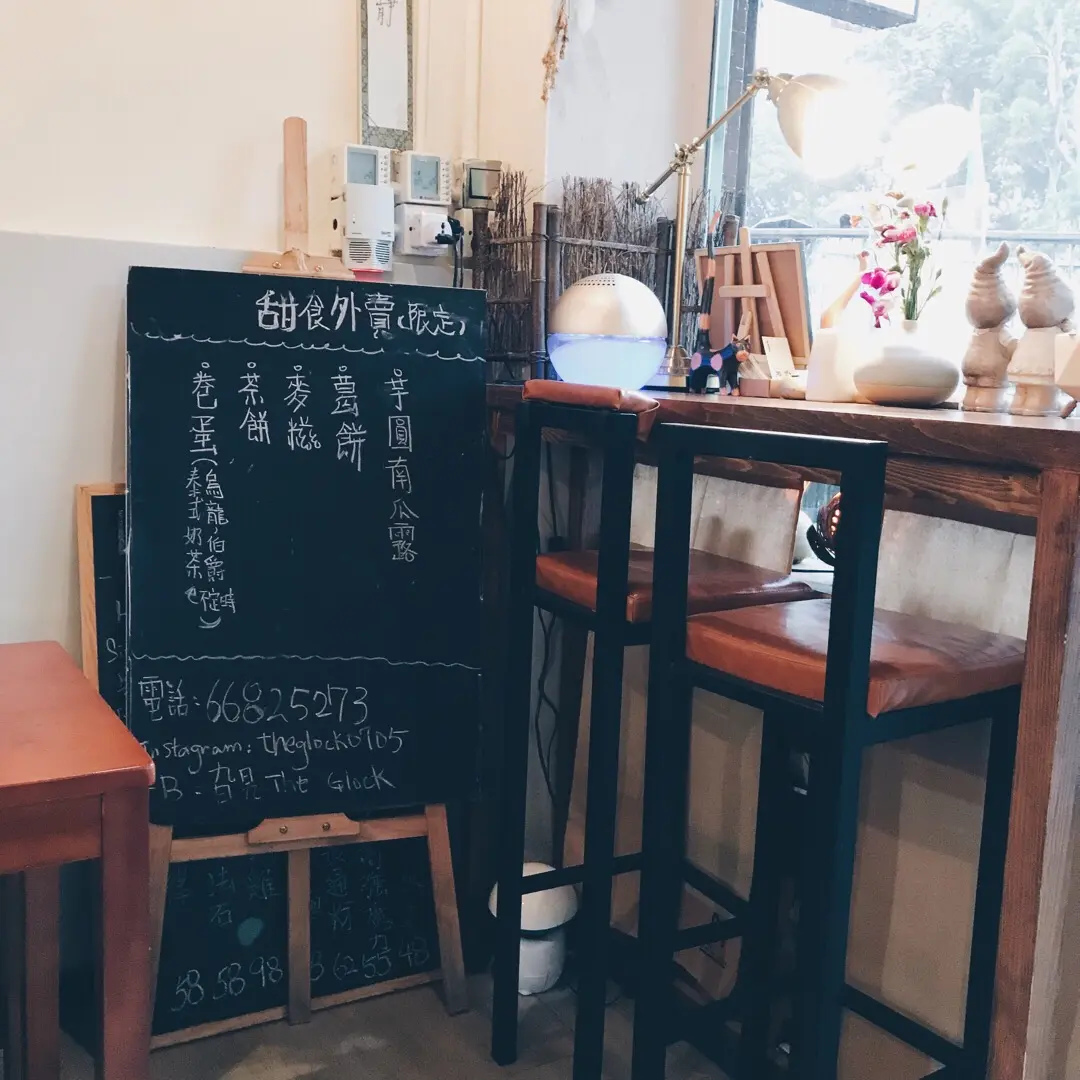 靜
甜食外賣(限定)
芋圓南瓜露
葛餅
麥糍
茶餅
卷蛋(烏龍伯爵時
泰式奶茶
電話:66825273
Instagram: theglock0705
The Glock
58 58 98 62 55 48